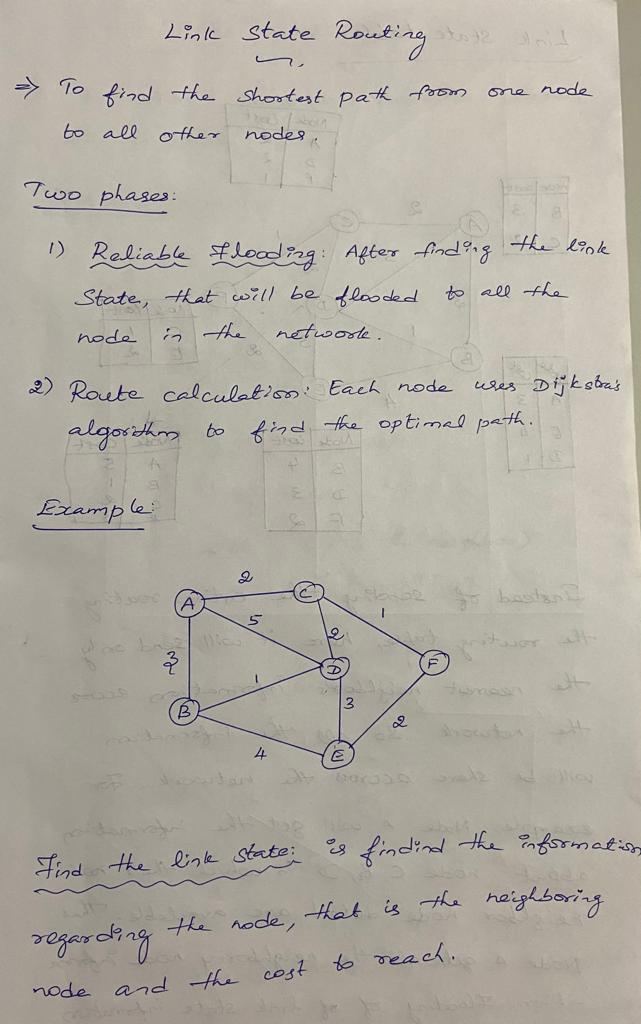 Link State Routing
⇒ To find the shortest path from one node
to all other nodes.
Two phases:
1) Reliable Flooding: After finding the link
State, that will be flooded to all the
node in the network.
2) Route calculation: Each node uses Dijkstra's
algorithm to find the optimal path.
Example:
2
A C
5 1
2
3 D F
1
B 3
2
4 E
Find the link state: is findind the information
regarding the node, that is the neighboring
node and the cost to reach.